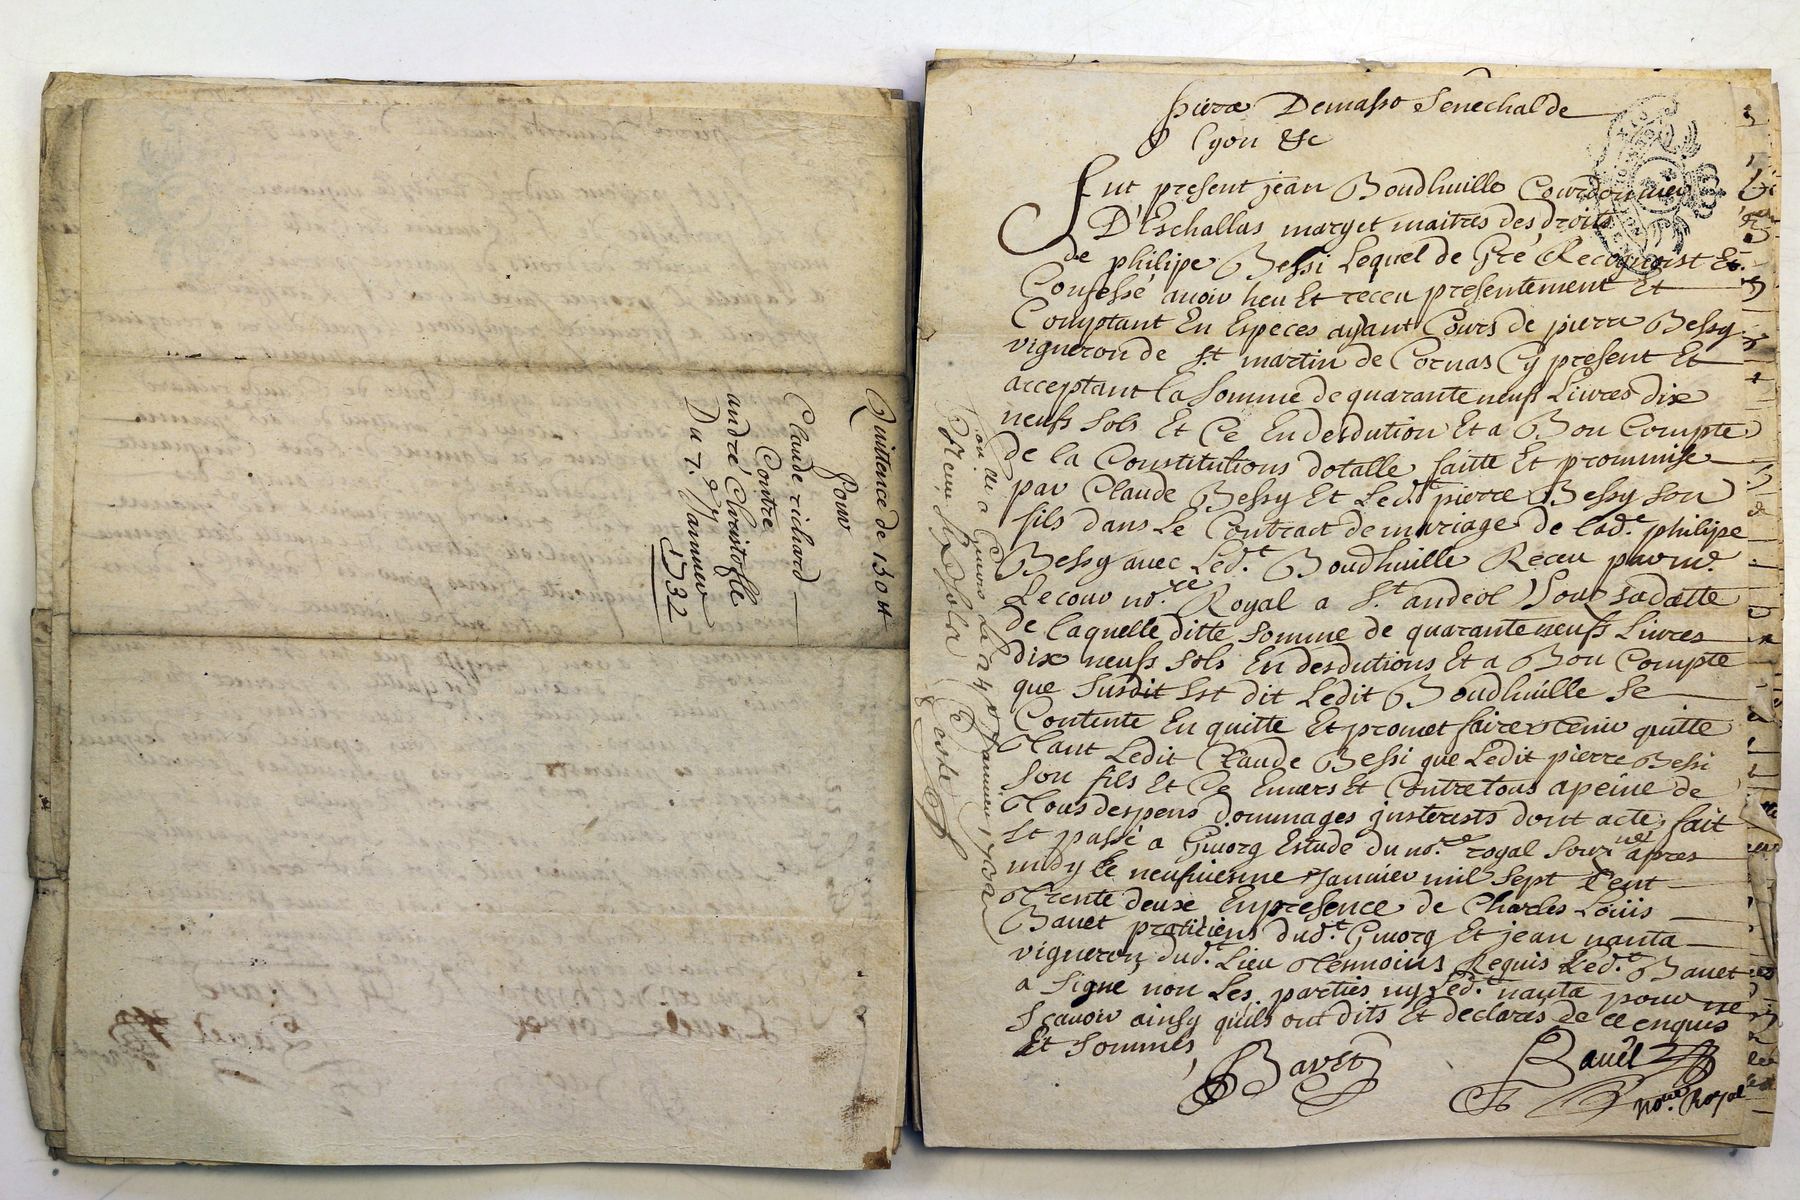 Quittence de 130 ₶
pour
Claude richard
Contre
andré Christofle
Du 7.e Janvier
1732
pierre Demasso Senechal de
Lyon &c
fut present jean Boudhuille Courdonnier
D'Eschallas mary et maitres des droits
de philipe Bessi Lequel de Gré Recognoist Et
Confessé avoir heu Et receu presentement Et
Comptant En Especes ayant Cours de pierre Bessy
vigneron de St. martin de Cornas Cy present Et
acceptant la Somme de quarante neufs Livres dix
neufs Sols Et Ce En desdution Et a Bon Compte
de la Constitutions dotalle faitte Et prommise
par Claude Bessy Et Led.t pierre Bessy Son
fils dans Le Contract de mariage de lad.e philipe
Bessy avec Led.t Boudhuille Receu par m.e
Lecour no.re Royal a S.t andeol Sous sadatte
de laquelle ditte Somme de quarante neufs Livres
dix neufs Sols En desdutions Et a Bon Compte
que Susdit Est dit Ledit Boudhuille Se
Contente En quitte Et promet faire tenir quitte
Tant Ledit Claude Bessi que Ledit pierre Bessi
Son fils Et Ce Envers Et Contre tous a peine de
Tous despens dommages jnsterests dont acte fait
Et passé a Givorg Estude du no.re royal Sous.né apres
midy le neufviesme Janvier mil Sept Cent
Trente deuxe En presence de Charles Loüis
Bavet pratitiens dud.t Givorg Et jean nanta
vigneron dud.t Lieu Temmoins Requis Led.t Bavet
a Signé non Les parties ny Led.t nanta pour ne
Scavoir ainsy quils ont dits Et declarés de ce enquis
Et Sommés
Bavet
Bavet
No.re Royal
Con.llé a Givors Le 24 Janvier 1732
Receu Six Sols